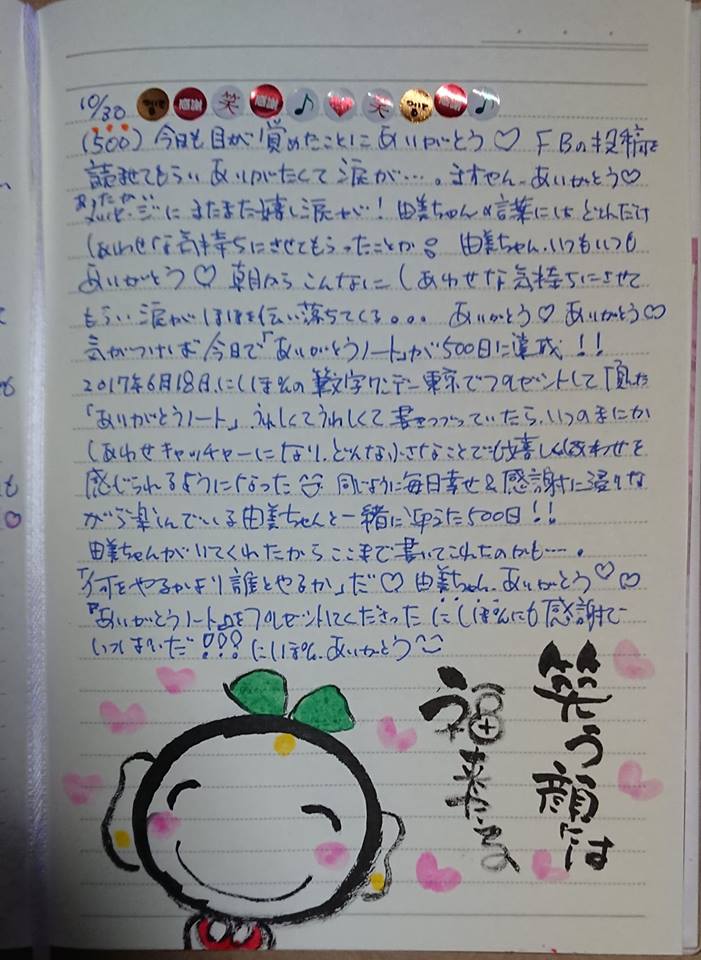 10/30 感謝 笑 感謝 ♪ ♥ 笑 感謝 ♪
(500) 今日も目が覚めたことにありがとう♡ FBの投稿を
読ませてもらい ありがたくて 涙が…。ません。ありがとう♡
にまたまた嬉し涙が！由美ちゃんの言葉には どれだけ
しあわせな気持ちにさせてもらったことか。由美ちゃん、いつもいつも
ありがとう♡ 朝から こんなに しあわせな気持ちにさせて
もらい 涙がほほを伝い落ちてくる。。。 ありがとう♡ ありがとう♡
気がつけば 今日で「ありがとうノート」が500日に達成！！
2017年6月18日、にしほ%の 筆文字ワンデー東京でプレゼントして頂いた
「ありがとうノート」 うれしくてうれしくて 書きつづっていたら、いつのまにか
しあわせキャッチャーになり、どんな小さなことでも嬉し
感じられるようになった 同じように毎日幸せ&感謝に浸りな
がら楽しんでいる由美ちゃんと一緒に迎えた500日！！
由美ちゃんがいてくれたからここまで書いてこれたのかも…。
「何をやるかより誰とやるか」だ♡ 由美ちゃん、ありがとう♡♡
『ありがとうノート』をプレゼントしてくださった にしほ%にも感謝で
いっぱいだ!!! にしほ%、ありがとう
笑う顔には
福来たる